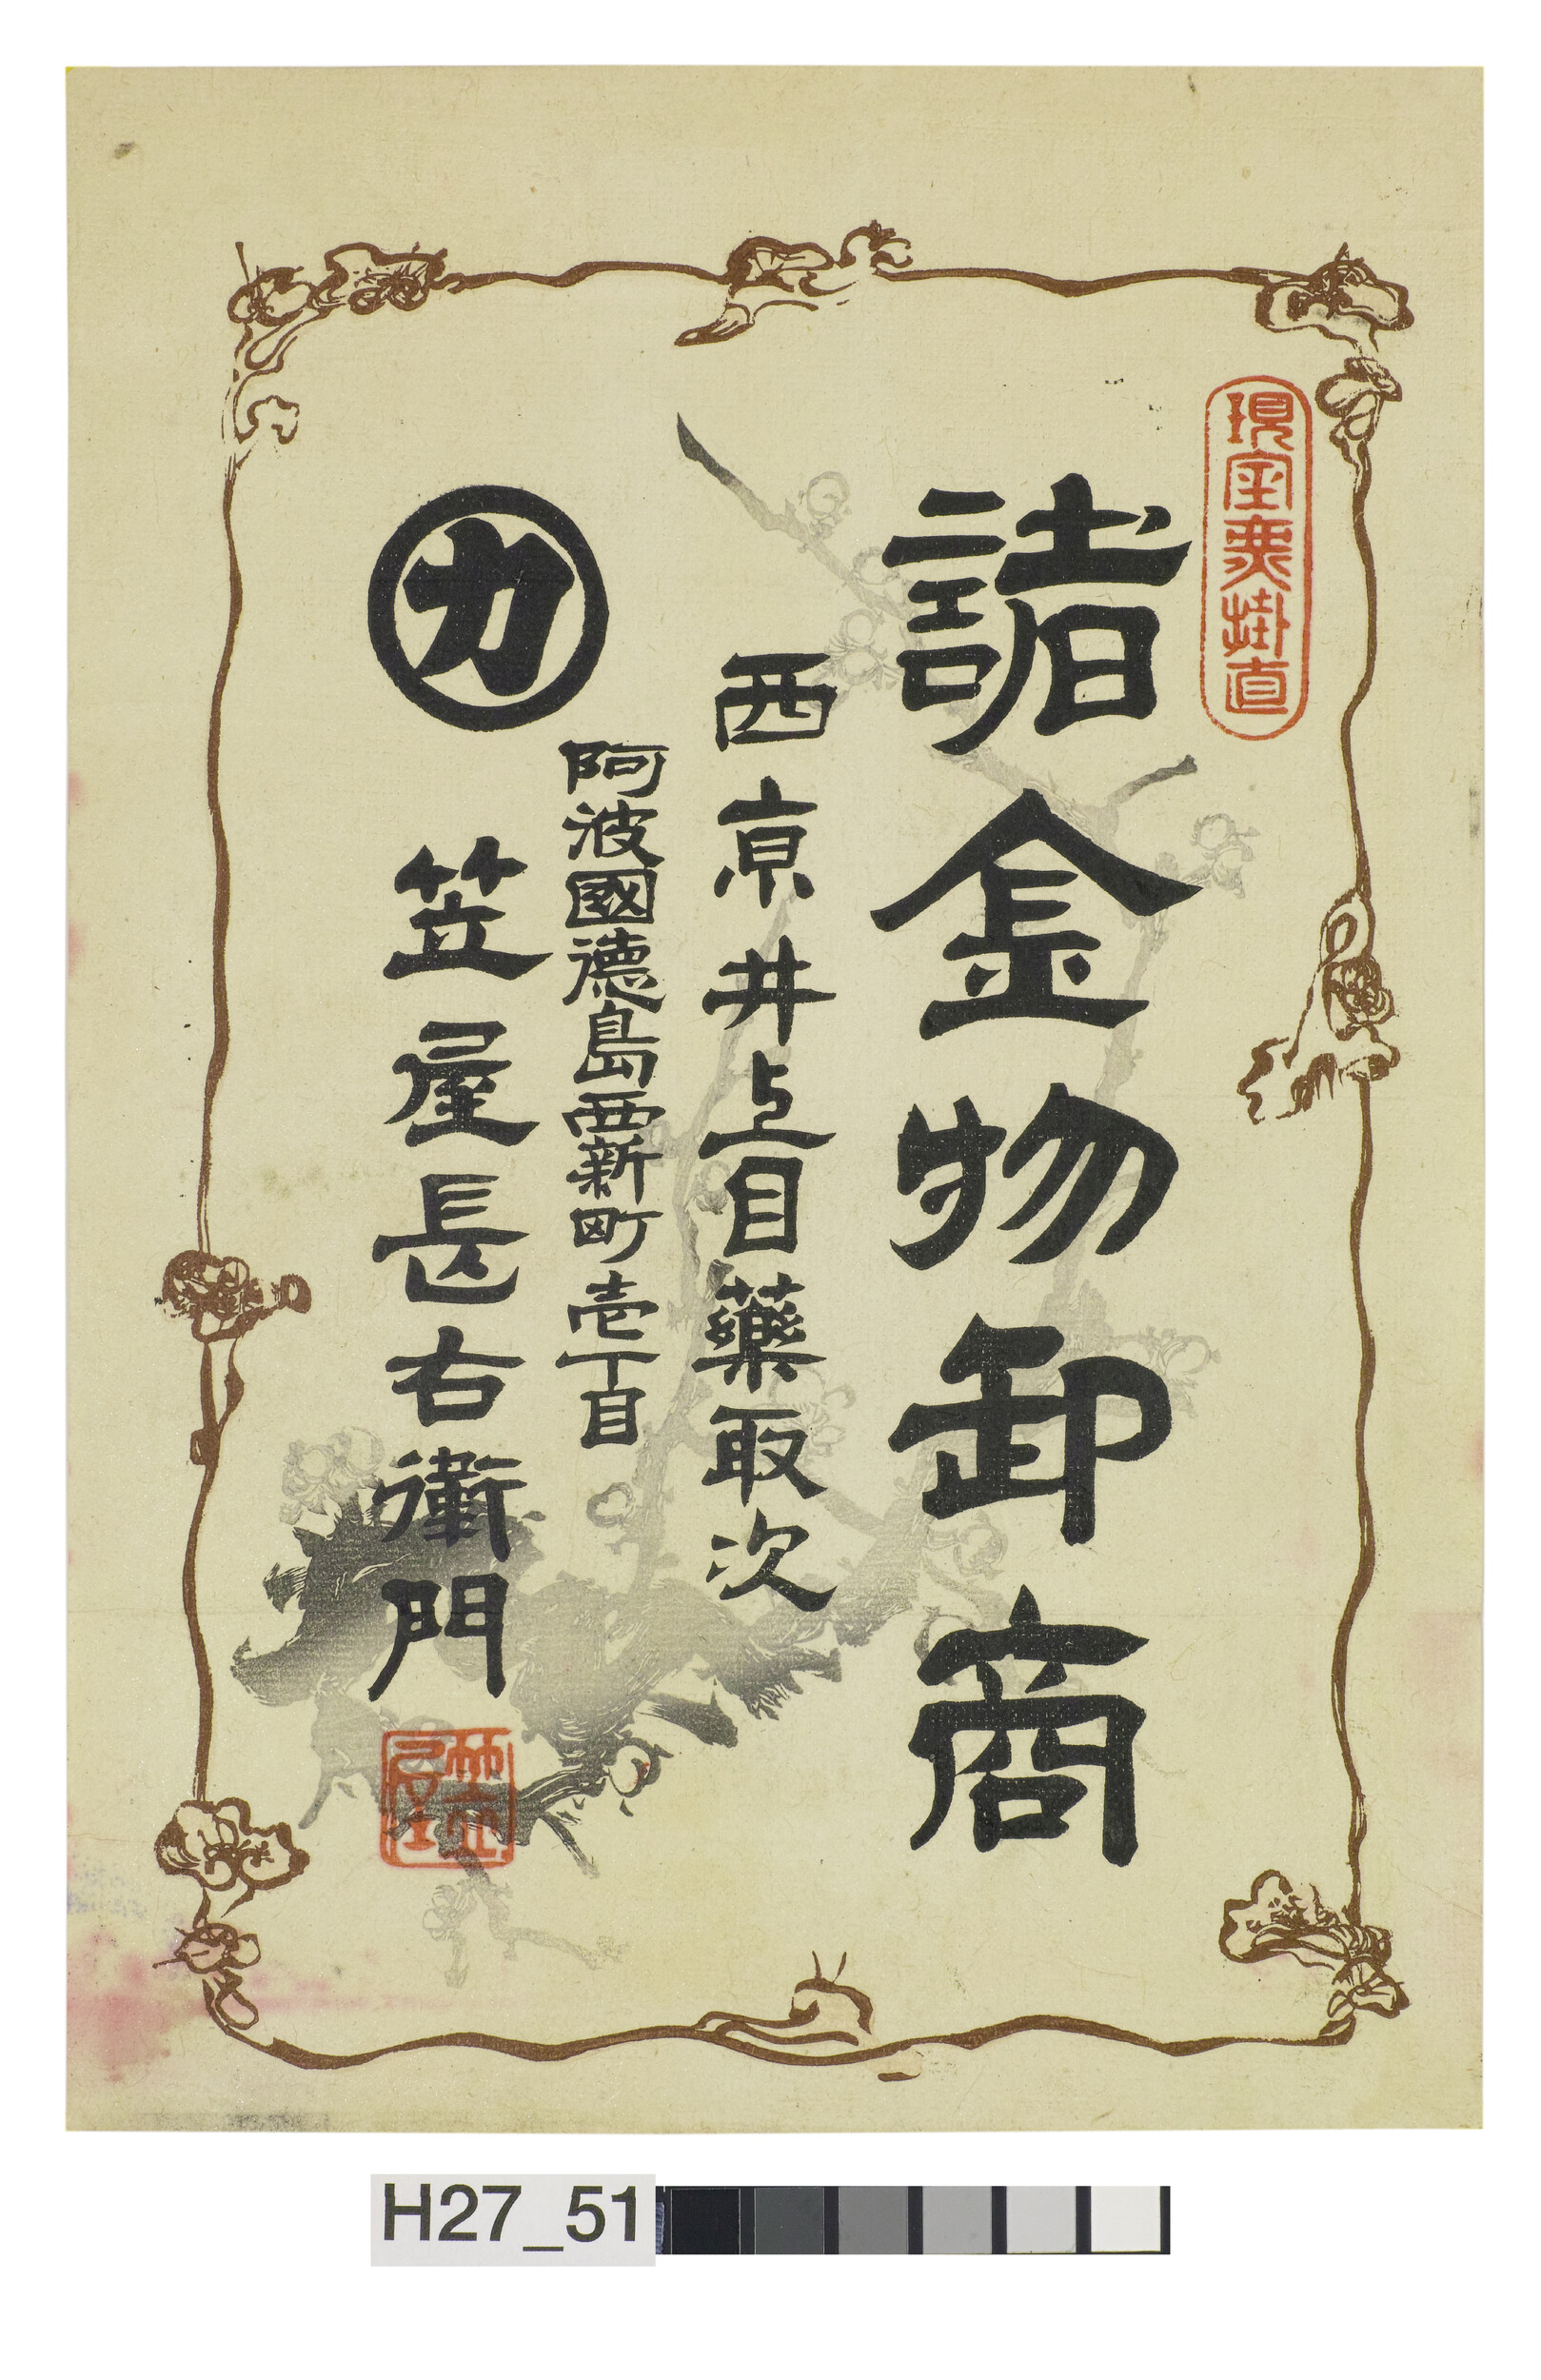 現金無掛直
諸金物卸商
西京井上目藥取次
阿波國德島西新町壱丁目
カ
笠屋長右衛門
笠屋
H27_51